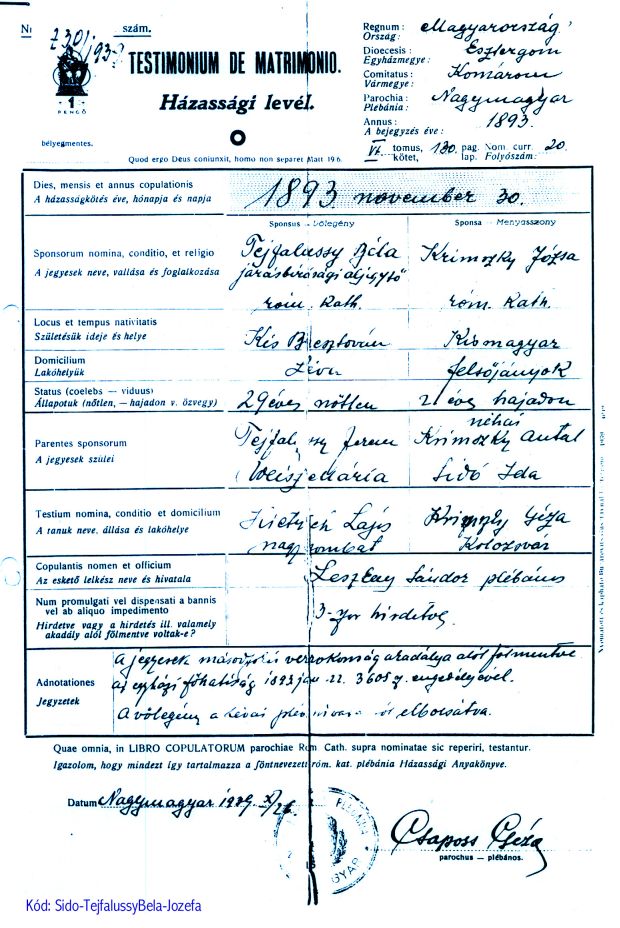 230/939 szám.
1
PENGŐ
bélyegmentes.
TESTIMONIUM DE MATRIMONIO.
Házassági levél.
Quod ergo Deus coniunxit, homo non separet Matt 19 6.
Regnum : Magyarország
Ország :
Dioecesis : Esztergom
Egyházmegye :
Comitatus : Komárom
Vármegye :
Parochia : Nagymagyar
Plébánia :
Annus : 1893.
A bejegyzés éve :
VI. tomus, 130. pag. Nom. curr. 20.
kötet, lap. Folyószám:
Dies, mensis et annus copulationis
A házasságkötés éve, hónapja és napja
1893 november 30.
Sponsus - vőlegény
Sponsa - Menyasszony
Sponsorum nomina, conditio, et religio
A jegyesek neve, vallása és foglalkozása
Tejfalussy Béla
járásbirósági aljegyző
róm. kath.
Krimszky Józsa
róm. kath.
Locus et tempus nativitatis
Születésük ideje és helye
Kis
Kismagyar
Domicilium
Lakóhelyük
Léva
felsőjányok
Status (coelebs — viduus)
Állapotuk (nőtlen, — hajadon v. özvegy)
29 éves nőtlen
21 éves hajadon
Parentes sponsorum
A jegyesek szülei
Tejfalussy Ferenc
Weisz Mária
néhai
Krimszky Antal
Sidó Ida
Testium nomina, conditio et domicilium
A tanuk neve, állása és lakóhelye
Lajos
nagyszombat
Krimszky Géza
Kolozsvár
Copulantis nomen et officium
Az eskető lelkész neve és hivatala
Sándor plébános
Num promulgati vel dispensati a bannis
vel ab aliquo impedimento
Hirdetve vagy a hirdetés ill. valamely
akadály alól fölmentve voltak-e?
3-szor hirdetve.
Adnotationes
Jegyzetek
A jegyesek másodfokú vérrokonság akadálya alól fölmentve
az egyházi főhatóság 1893 jan. 22. 3605 sz. engedélyével.
A vőlegény a lévai elbocsátva.
Quae omnia, in LIBRO COPULATORUM parochiae Rom Cath. supra nominatae sic reperiri, testantur.
Igazolom, hogy mindezt így tartalmazza a föntnevezett róm. kat. plébánia Házassági Anyakönyve.
Datum Nagymagyar 1939. X/26.
Csaposs Géza
parochus — plébános.
Kód: Sido-TejfalussyBela-Jozefa